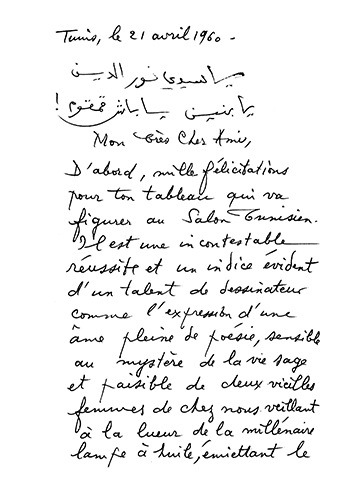 Tunis, le 21 avril 1960 -
يا سيدي نور الدين
يا بنين يا باش
Mon Très Cher Ami,
D'abord, mille félicitations
pour ton tableau qui va
figurer au Salon Tunisien.
Il est une incontestable
réussite et un indice évident
d'un talent de dessinateur
comme l'expression d'une
âme pleine de poésie, sensible
au mystère de la vie sage
et paisible de deux vieilles
femmes de chez nous veillant
à la lueur de la millénaire
lampe à huile, émiettant le